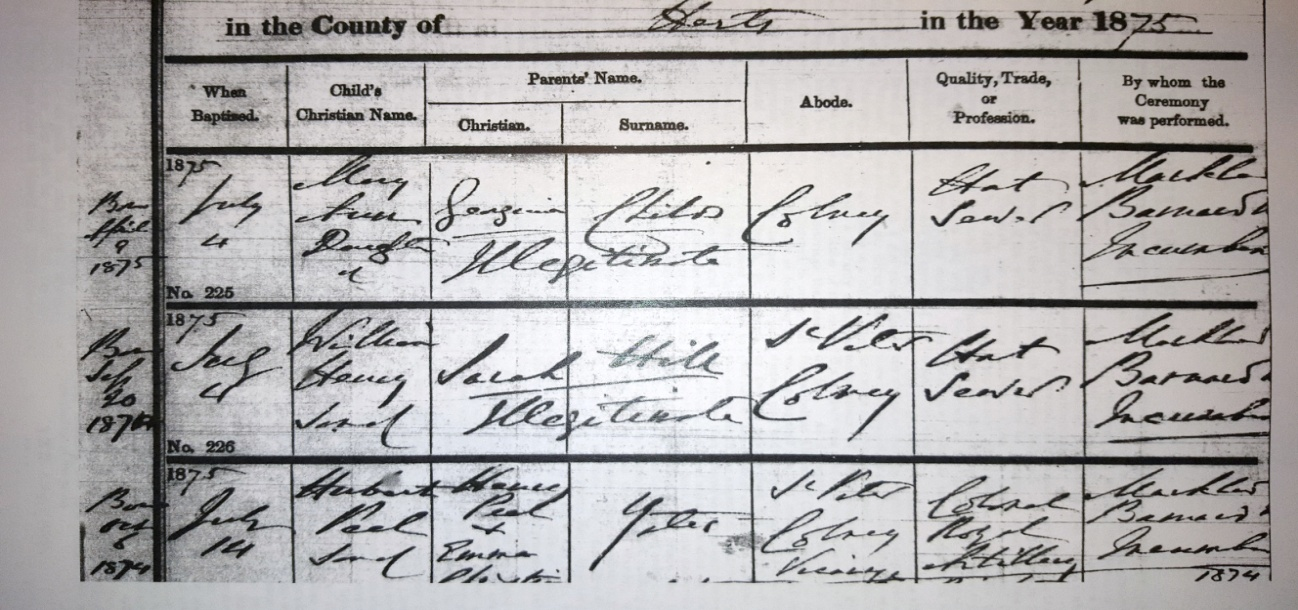 in the County of Herts in the Year 1875
When Baptized.
Child's Christian Name.
Parents' Name.
Christian.
Surname.
Abode.
Quality, Trade, or Profession.
By whom the Ceremony was performed.
Born
April
9
1875
1875
July
4
No. 225
Mary
Ann
Daughter
of
Georgina
Illegitimate
Colney
Hat
Sewer
Barnard
Incumben
Born
20
1875
July
4
No. 226
William
Henry
Son of
Sarah Hill
Illegitimate
St Peter
Colney
Hat
Sewer
Barnard
Incumben
Born
8
1874
1875
July
14
Herbert
Peel
Son of
Peel
+
Emma
Yates
St Peter
Colney
Vicarage
Colonel
Royal
Artillery
Barnard
Incumben
1874